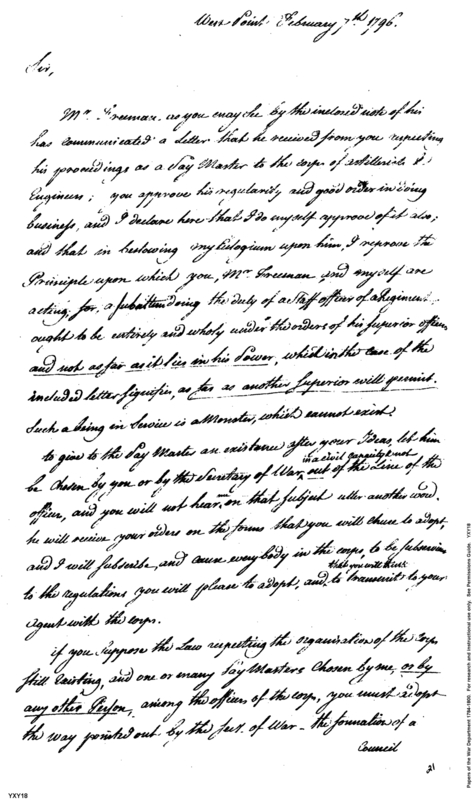 West Point February 7th 1796.
Sir,
Mr. Freeman as you may see by the inclosed note of his
has communicated a Letter that he received from you respecting
his proceedings as a Pay Master to the corps of artillerists &
Engineers; you approve his regularity and good order in doing
business, and I declare here that I do myself approve of it also;
and that in bestowing my Eulogium upon him, I reprove the
Principle upon which you, Mr. Freeman and myself are
acting, for, a subaltern doing the duty of a Staff officer of a Regiment
ought to be entirely and wholy under the orders of his superior officer
and not as far as it lies in his Power, which in the case of the
included letter signifies, as far as another Superior will permit.
Such a being in Service is a Monster, which cannot exist.
to give to the Pay Master an existance after your Ideas, let him
be chosen by you or by the Secretary of War in a civil capacity & not out of the Line of the
officers, and you will not hear me on that subject utter another word.
he will receive your orders on the forms that you will chuse to adopt,
and I will subscribe, and cause everybody in the corps, to be subservient
to the regulations you will please to adopt, and that you will think to transmit to your
agent with the corps.
if you suppose the Law respecting the organisation of the Corps
still Existing, and one or many Pay Masters Chosen by me, or by
any other Person, among the officers of the corps, you must adopt
the way pointed out by the Secy. of War - the formation of a
Council
21
YXY18
Papers of the War Department 1784-1800. For research and instructional use only. See Permissions Guide. YXY18